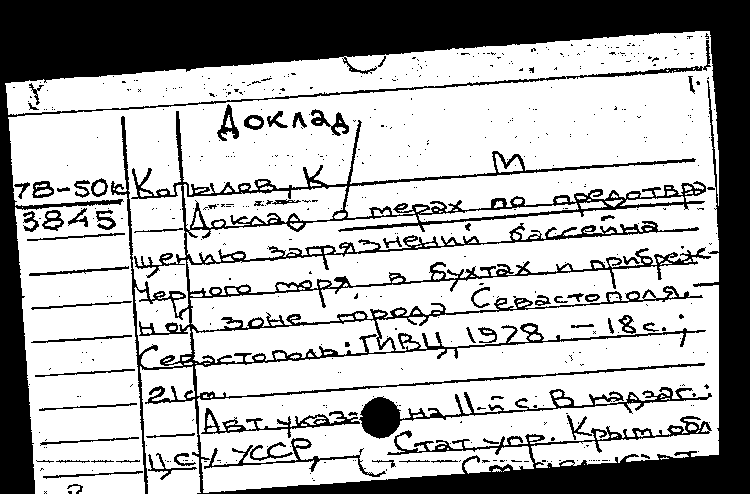 Доклад
м
78-50к Копылов, К
3845 Доклад о мерах по предотвра-
щению загрязнений бассейна
Черного моря в бухтах и прибреж-
ной зоне города Севастополя. –
Севастополь: ГИВЦ, 1978. – 18 с.;
21 см.
Авт. указан на 11-й с. В надзаг.:
ЦСУ УССР, Стат. упр. Крым. обл.